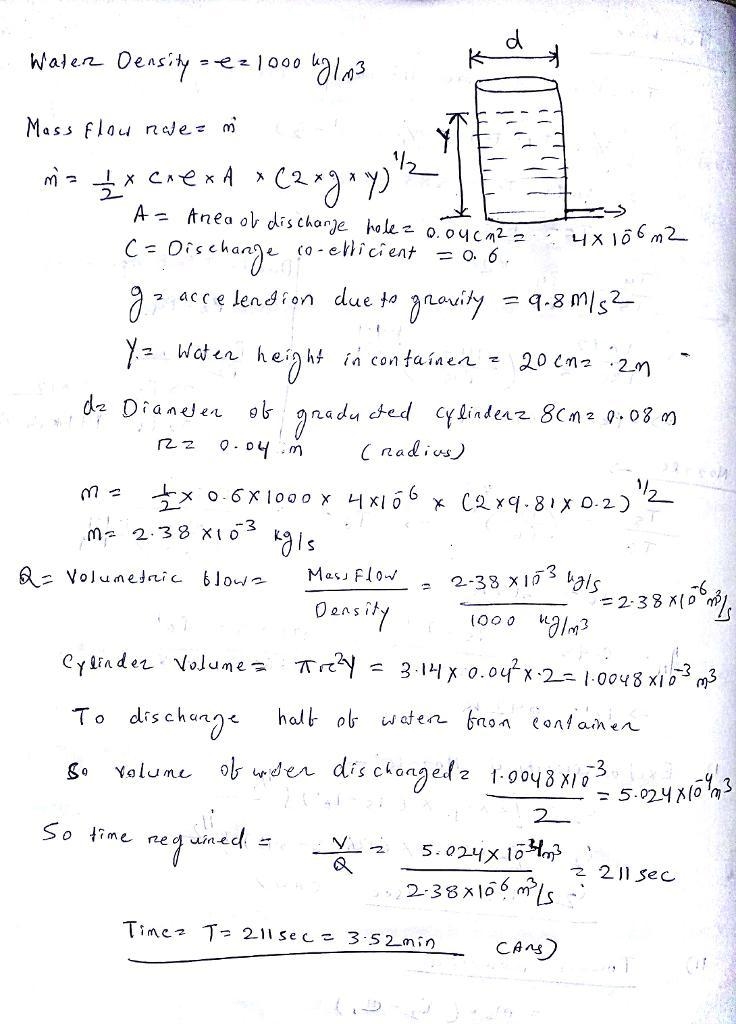 d
Water Density = e = 1000 kg/m3
Mass flow rate = ṁ
Y
ṁ = 1/2 x C x e x A x (2 x g x y)^1/2
A = Area of discharge hole = 0.04cm2 = 4x10^-6 m2
C = Discharge co-efficient = 0.6.
g = acceleration due to gravity = 9.8 m/s2
Y = Water height in container = 20 cm = .2m
d = Diameter of graducted cylinder = 8cm = 0.08 m
r = 0.04 m (radius)
m = 1/2 x 0.6x1000 x 4x10^-6 x (2x9.81x0.2)^1/2
m = 2.38 x10^-3 kg/s
Q = Volumetric flow = Mass Flow / Density = 2.38 x10^-3 kg/s / 1000 kg/m3 = 2.38x10^-6 m3/s
Cylinder Volume = πr^2y = 3.14 x 0.04^2 x .2 = 1.0048 x10^-3 m3
To discharge half of water from container
So volume of water discharged = 1.0048x10^-3 / 2 = 5.024x10^-4 m3
So time required = V/Q = 5.024x10^-4 m3 / 2.38x10^-6 m3/s = 211 sec
Time = T = 211 sec = 3.52min (Ans)